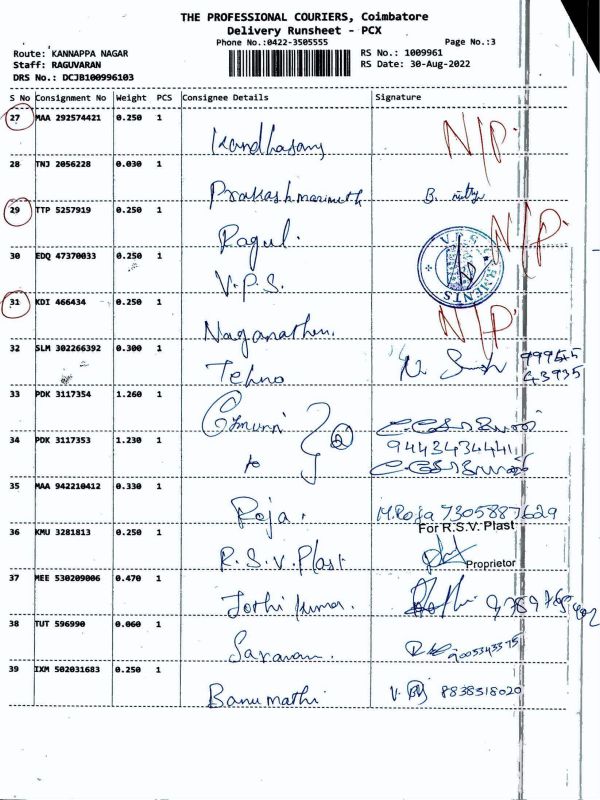 THE PROFESSIONAL COURIERS, Coimbatore
Delivery Runsheet - PCX
Phone No.:0422-3505555 Page No.:3
Route: KANNAPPA NAGAR RS No.: 1009961
Staff: RAGUVARAN RS Date: 30-Aug-2022
DRS No.: DCJB100996103
S No Consignment No Weight PCS Consignee Details Signature
27 MAA 292574421 0.250 1
Kandhasamy N/P.
28 TNJ 2056228 0.030 1
Prakashmarimuth B.
29 TTP 5257919 0.250 1
Ragul. N/P.
30 EDQ 47370033 0.250 1
V.P.S.
31 KDI 466434 0.250 1
Naganathan. N/P.
32 SLM 302266392 0.300 1
Tehno 99945
43935
33 PDK 3117354 1.260 1
34 PDK 3117353 1.230 1
to 2 9443434441
35 MAA 942210412 0.330 1
Roja. M.Roja 7305887629
36 KMU 3281813 0.250 1 For R.S.V. Plast
R.S.V. Plast Proprietor
37 MEE 530209006 0.470 1
Jothi kumar.
38 TUT 596990 0.060 1
Saravanan.
39 IXM 502031683 0.250 1
Banumathi V. 8838518020